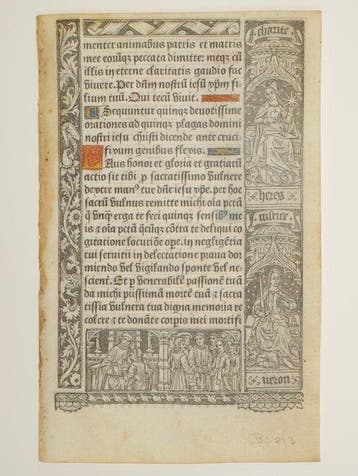 menter animabus patris et matris
mee eorūq; peccata dimitte: meq; cū
illis in eterne claritatis gaudio fac
vivere. Per dn̄m nostrū iesū xp̄m fi-
lium tuū. Qui tecū vivit.
Sequuntur quinq; devotissime
orationes ad quinq; plagas domini
nostri iesu christi dicende ante cruci
fixum genibus flexis.
Laus honor et gloria et gratiarū
actio sit tibi
sacratissimo vulnere
dextere man⁹ tue dn̄e iesu xp̄e. per hoc
sacrū vulnus remitte michi oīa pctā
erga te feci quinq; sensib⁹ me
is
cōtra te deliqui co
gitatione locutiōe ope. in negligētia
tui servitii in delectatione prava dor
miendo vel vigilando sponte vel ne-
scienter. Et p venerabilē passionē tuā
da michi piissimā mortē tuā
sacra
tissima vulnera tua digna memoria re
colere
te donāte corpus mei mortifi
charite
heros
iustice
neron